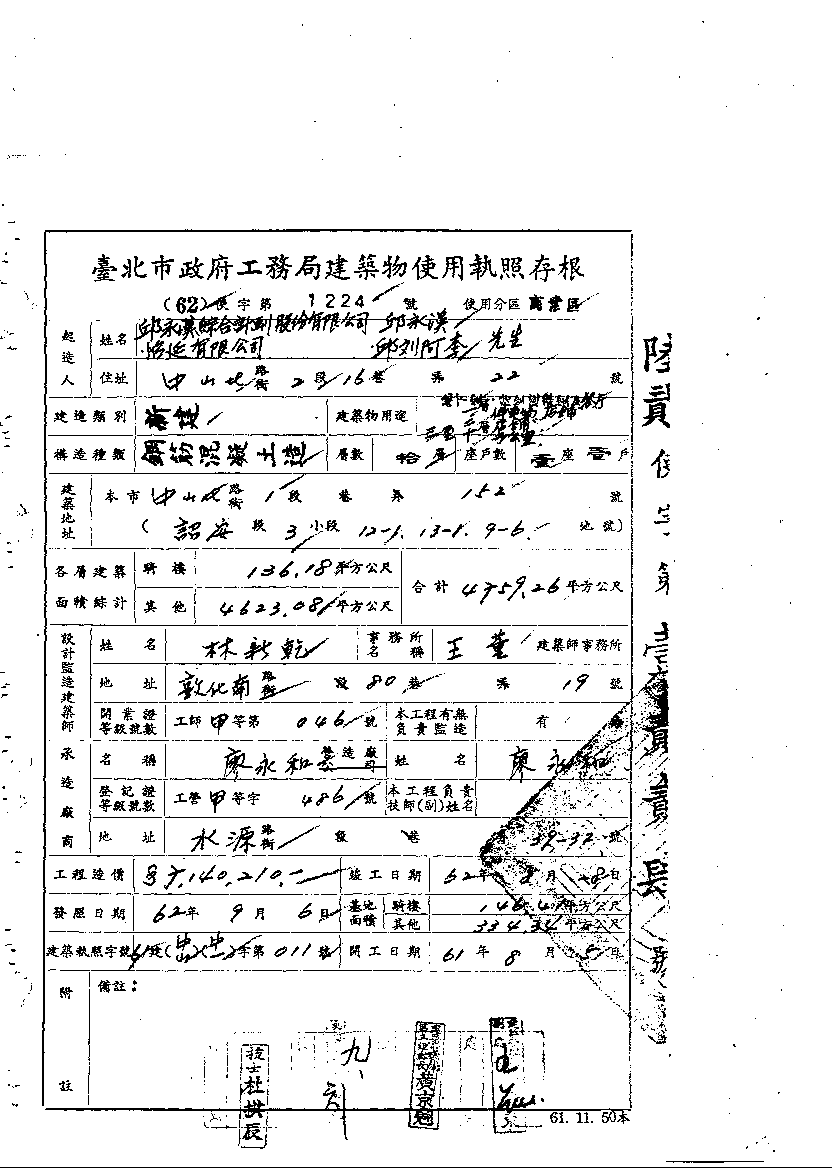 臺北市政府工務局建築物使用執照存根
(62)使字第 1224 號 使用分區 商業區
起造人 姓名 邱永漢綜合計劃股份有限公司 邱永漢
有限公司 邱刘阿李 先生
住址 中山北路街 2段 16巷 弄 22 號
建造類別 新建 建築物用途
構造種類 鋼筋混凝土造 層數 拾層 座戶數 壹座壹戶
建築地址 本市 中山北路街 1段 巷 弄 152 號
( 段 3小段 12-1. 13-1. 9-6. 地號)
各層建築面積綜計 騎樓 136.18平方公尺 合計 4759.26平方公尺
其他 4623.08平方公尺
設計監造建築師 姓名 林新乾 事務所名稱 王 建築師事務所
地址 敦化南路街 段 80巷 弄 19 號
開業證等級號數 工師甲等第 046 號 本工程有無負責監造 有
承造廠商 名稱 廖永和營造廠 姓名 廖永和
登記證等級號數 工營甲等字 486 號 本工程負責技師(副)姓名
地址 水源路街 段 巷 39-32 號
工程造價 140,210.- 竣工日期 62年 8月 日
發照日期 62年 9月 6日 基地面積 騎樓 146.41平方公尺
其他 334.34平方公尺
建築執照字號 61建( )( )字第 011號 開工日期 61年 8月 5日
附註 備註:
技士杜拱辰
九、六
61. 11. 50本
陸貳使字第壹貳貳 號